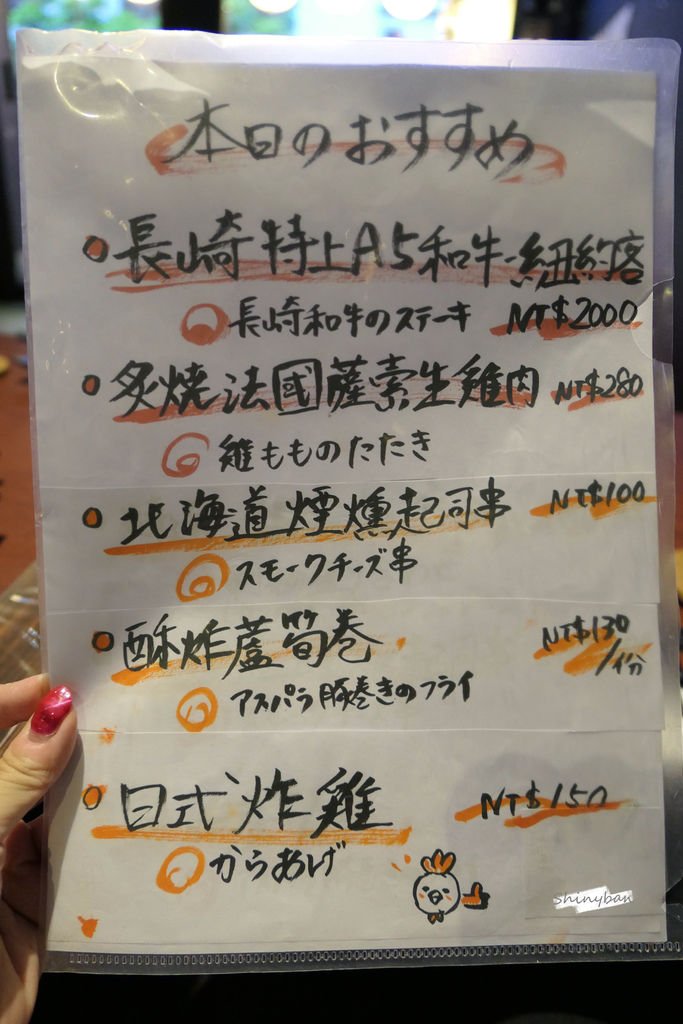 本日のおすすめ
長崎特上A5和牛-紐約客
長崎和牛のステーキ NT$2000
炙燒法國薩索生雞肉 NT$280
雞もものたたき
北海道煙燻起司串 NT$100
スモークチーズ串
酥炸蘆筍巻 NT$130/1份
アスパラ豚巻きのフライ
日式炸雞 NT$150
からあげ
shinyban